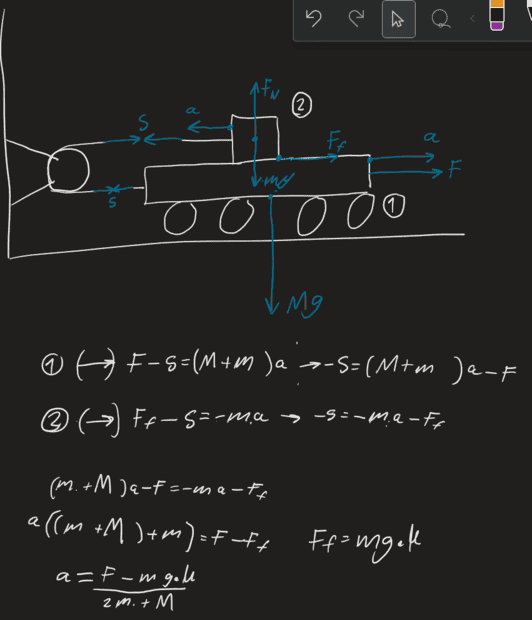 F_N
②
a
S
F_f
a
mg
F
S
①
Mg
① (→) F-S=(M+m)a → -S=(M+m)a-F
② (→) F_f-S=-ma → -S=-ma-F_f
(m+M)a-F=-ma-F_f
a((m+M)+m)=F-F_f F_f=mg·μ
a=\frac{F-mg·μ}{2m+M}